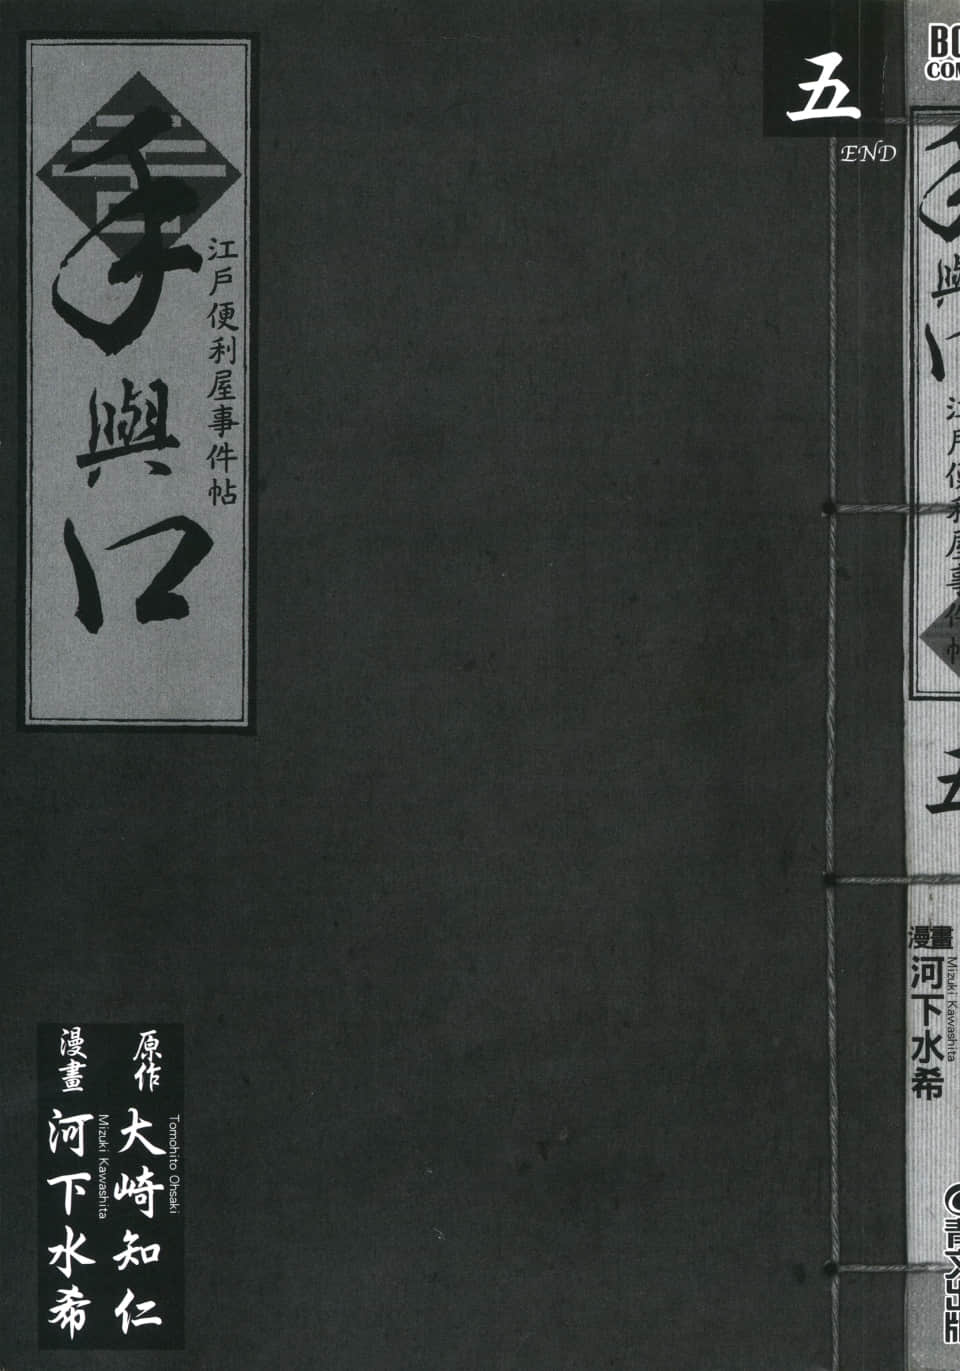 五
END
江戶便利屋事件帖
手與口
原作
大崎知仁
Tomohito Ohsaki
漫畫
河下水希
Mizuki Kawashita
手與口
江戶便利屋事件帖
五
漫畫
河下水希
Mizuki Kawashita
青文出版